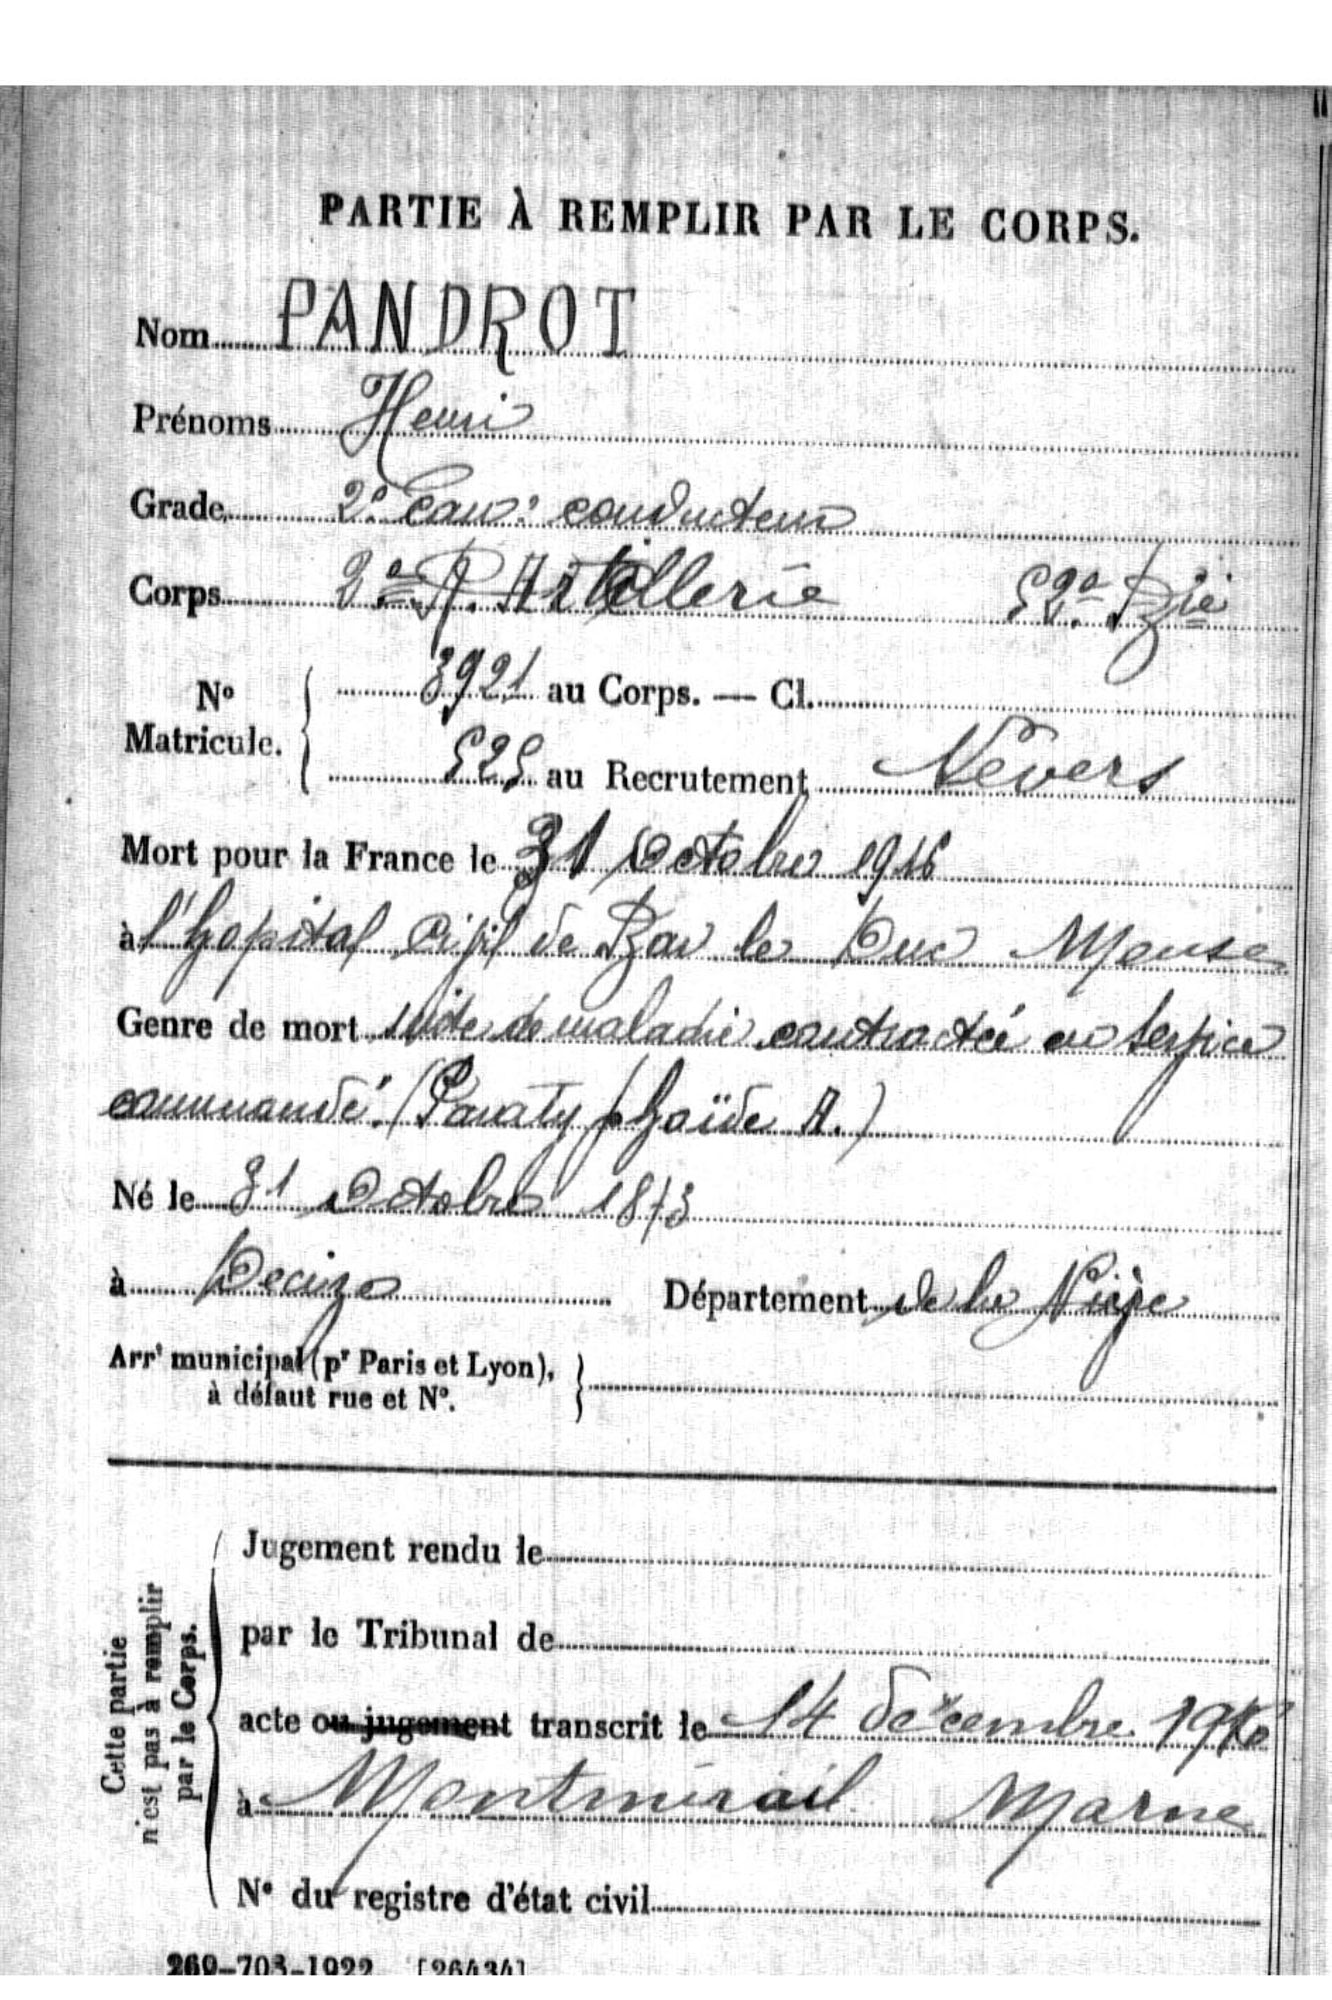 PARTIE À REMPLIR PAR LE CORPS.
Nom PANDROT
Prénoms Henri
Grade 2e Can: conducteur
Corps 2e R. Artillerie 52e Bie
No Matricule. 3921 au Corps. — Cl.
525 au Recrutement Nevers
Mort pour la France le 31 Octobre 1916
à l'hopital Civil de Bar le Duc Meuse
Genre de mort suite de maladie contractée en service
commandé. (Paratyphoïde A.)
Né le 31 Octobre 1873
à Decize Département de la Nièvre
Arrt municipal (pr Paris et Lyon),
à défaut rue et No.
Cette partie
n'est pas à remplir
par le Corps.
Jugement rendu le
par le Tribunal de
acte ou jugement transcrit le 14 décembre 1916
à Montmirail Marne
No du registre d'état civil
269-708-1922 [26434]